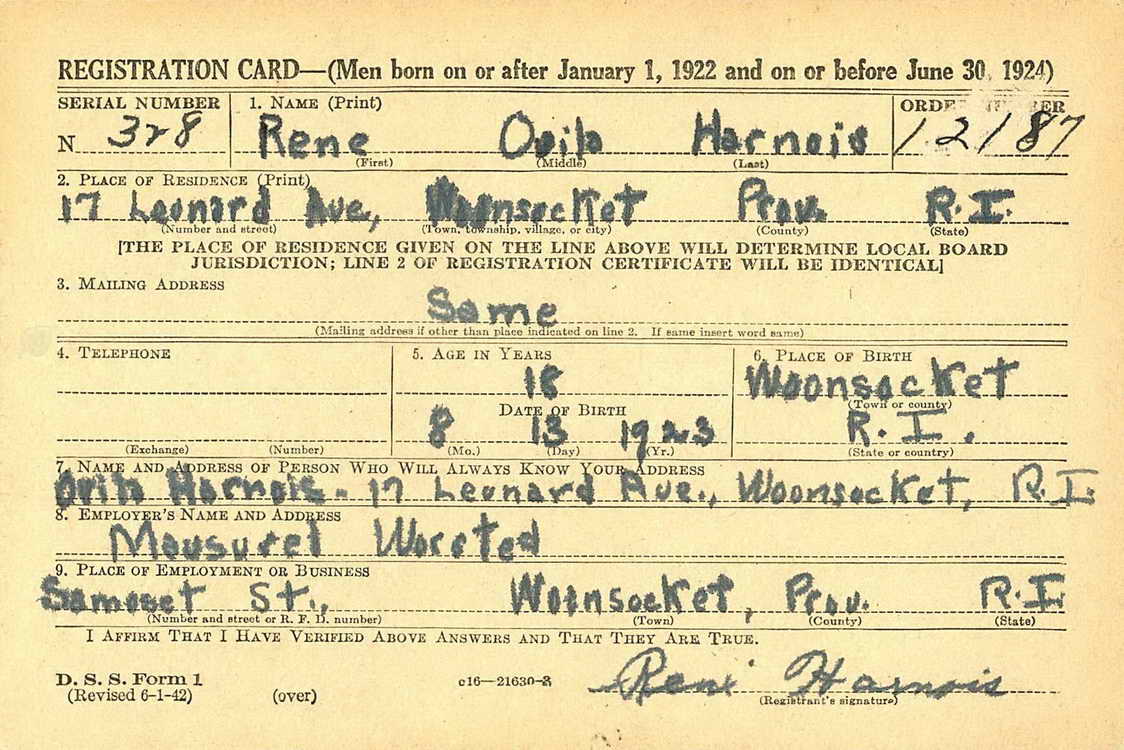 REGISTRATION CARD—(Men born on or after January 1, 1922 and on or before June 30, 1924)
SERIAL NUMBER 1. NAME (Print) ORDER NUMBER
N 328 Rene Ovila Harnois 12187
(First) (Middle) (Last)
2. PLACE OF RESIDENCE (Print)
17 Leonard Ave., Woonsocket Prov. R.I.
(Number and street) (Town, township, village, or city) (County) (State)
[THE PLACE OF RESIDENCE GIVEN ON THE LINE ABOVE WILL DETERMINE LOCAL BOARD
JURISDICTION; LINE 2 OF REGISTRATION CERTIFICATE WILL BE IDENTICAL]
3. MAILING ADDRESS
Same
(Mailing address if other than place indicated on line 2. If same insert word same)
4. TELEPHONE 5. AGE IN YEARS 6. PLACE OF BIRTH
18 Woonsocket
(Town or county)
DATE OF BIRTH
8 13 1923 R.I.
(Exchange) (Number) (Mo.) (Day) (Yr.) (State or country)
7. NAME AND ADDRESS OF PERSON WHO WILL ALWAYS KNOW YOUR ADDRESS
Ovila Harnois - 17 Leonard Ave., Woonsocket, R.I.
8. EMPLOYER'S NAME AND ADDRESS
Worsted
9. PLACE OF EMPLOYMENT OR BUSINESS
St., Woonsocket, Prov. R.I.
(Number and street or R. F. D. number) (Town) (County) (State)
I AFFIRM THAT I HAVE VERIFIED ABOVE ANSWERS AND THAT THEY ARE TRUE.
D. S. S. Form 1
(Revised 6-1-42) (over) c16—21630-2 Rene Harnois
(Registrant's signature)